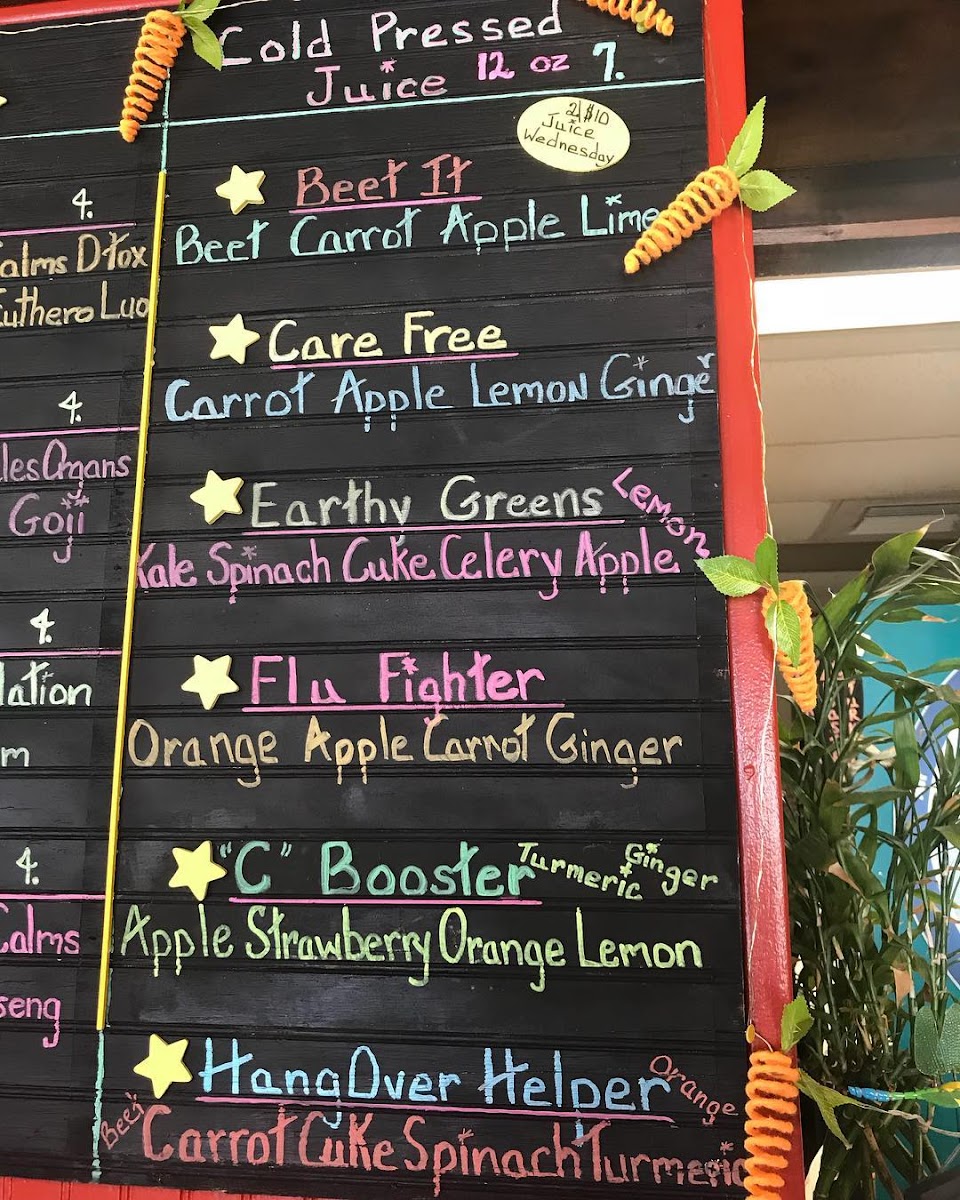 Cold Pressed
Juice 12 oz 7.
2/$10
Juice
Wednesday
Beet It
Beet Carrot Apple Lime
Care Free
Carrot Apple Lemon Ginger
Earthy Greens Lemon
Kale Spinach Cuke Celery Apple
Flu Fighter
Orange Apple Carrot Ginger
"C" Booster Turmeric Ginger
Apple Strawberry Orange Lemon
HangOver Helper Orange
Beet Carrot Cuke Spinach Turmeric
4.
Calms Dtox
Euthero Luo
4.
Goji
4.
4.
Calms